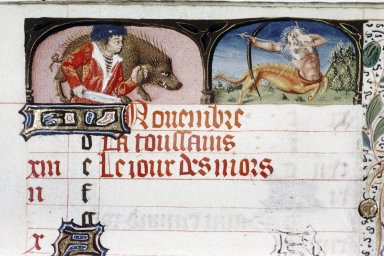 Nouembre
d La toussains
xiii e Le jour des mors
ii f
g
x